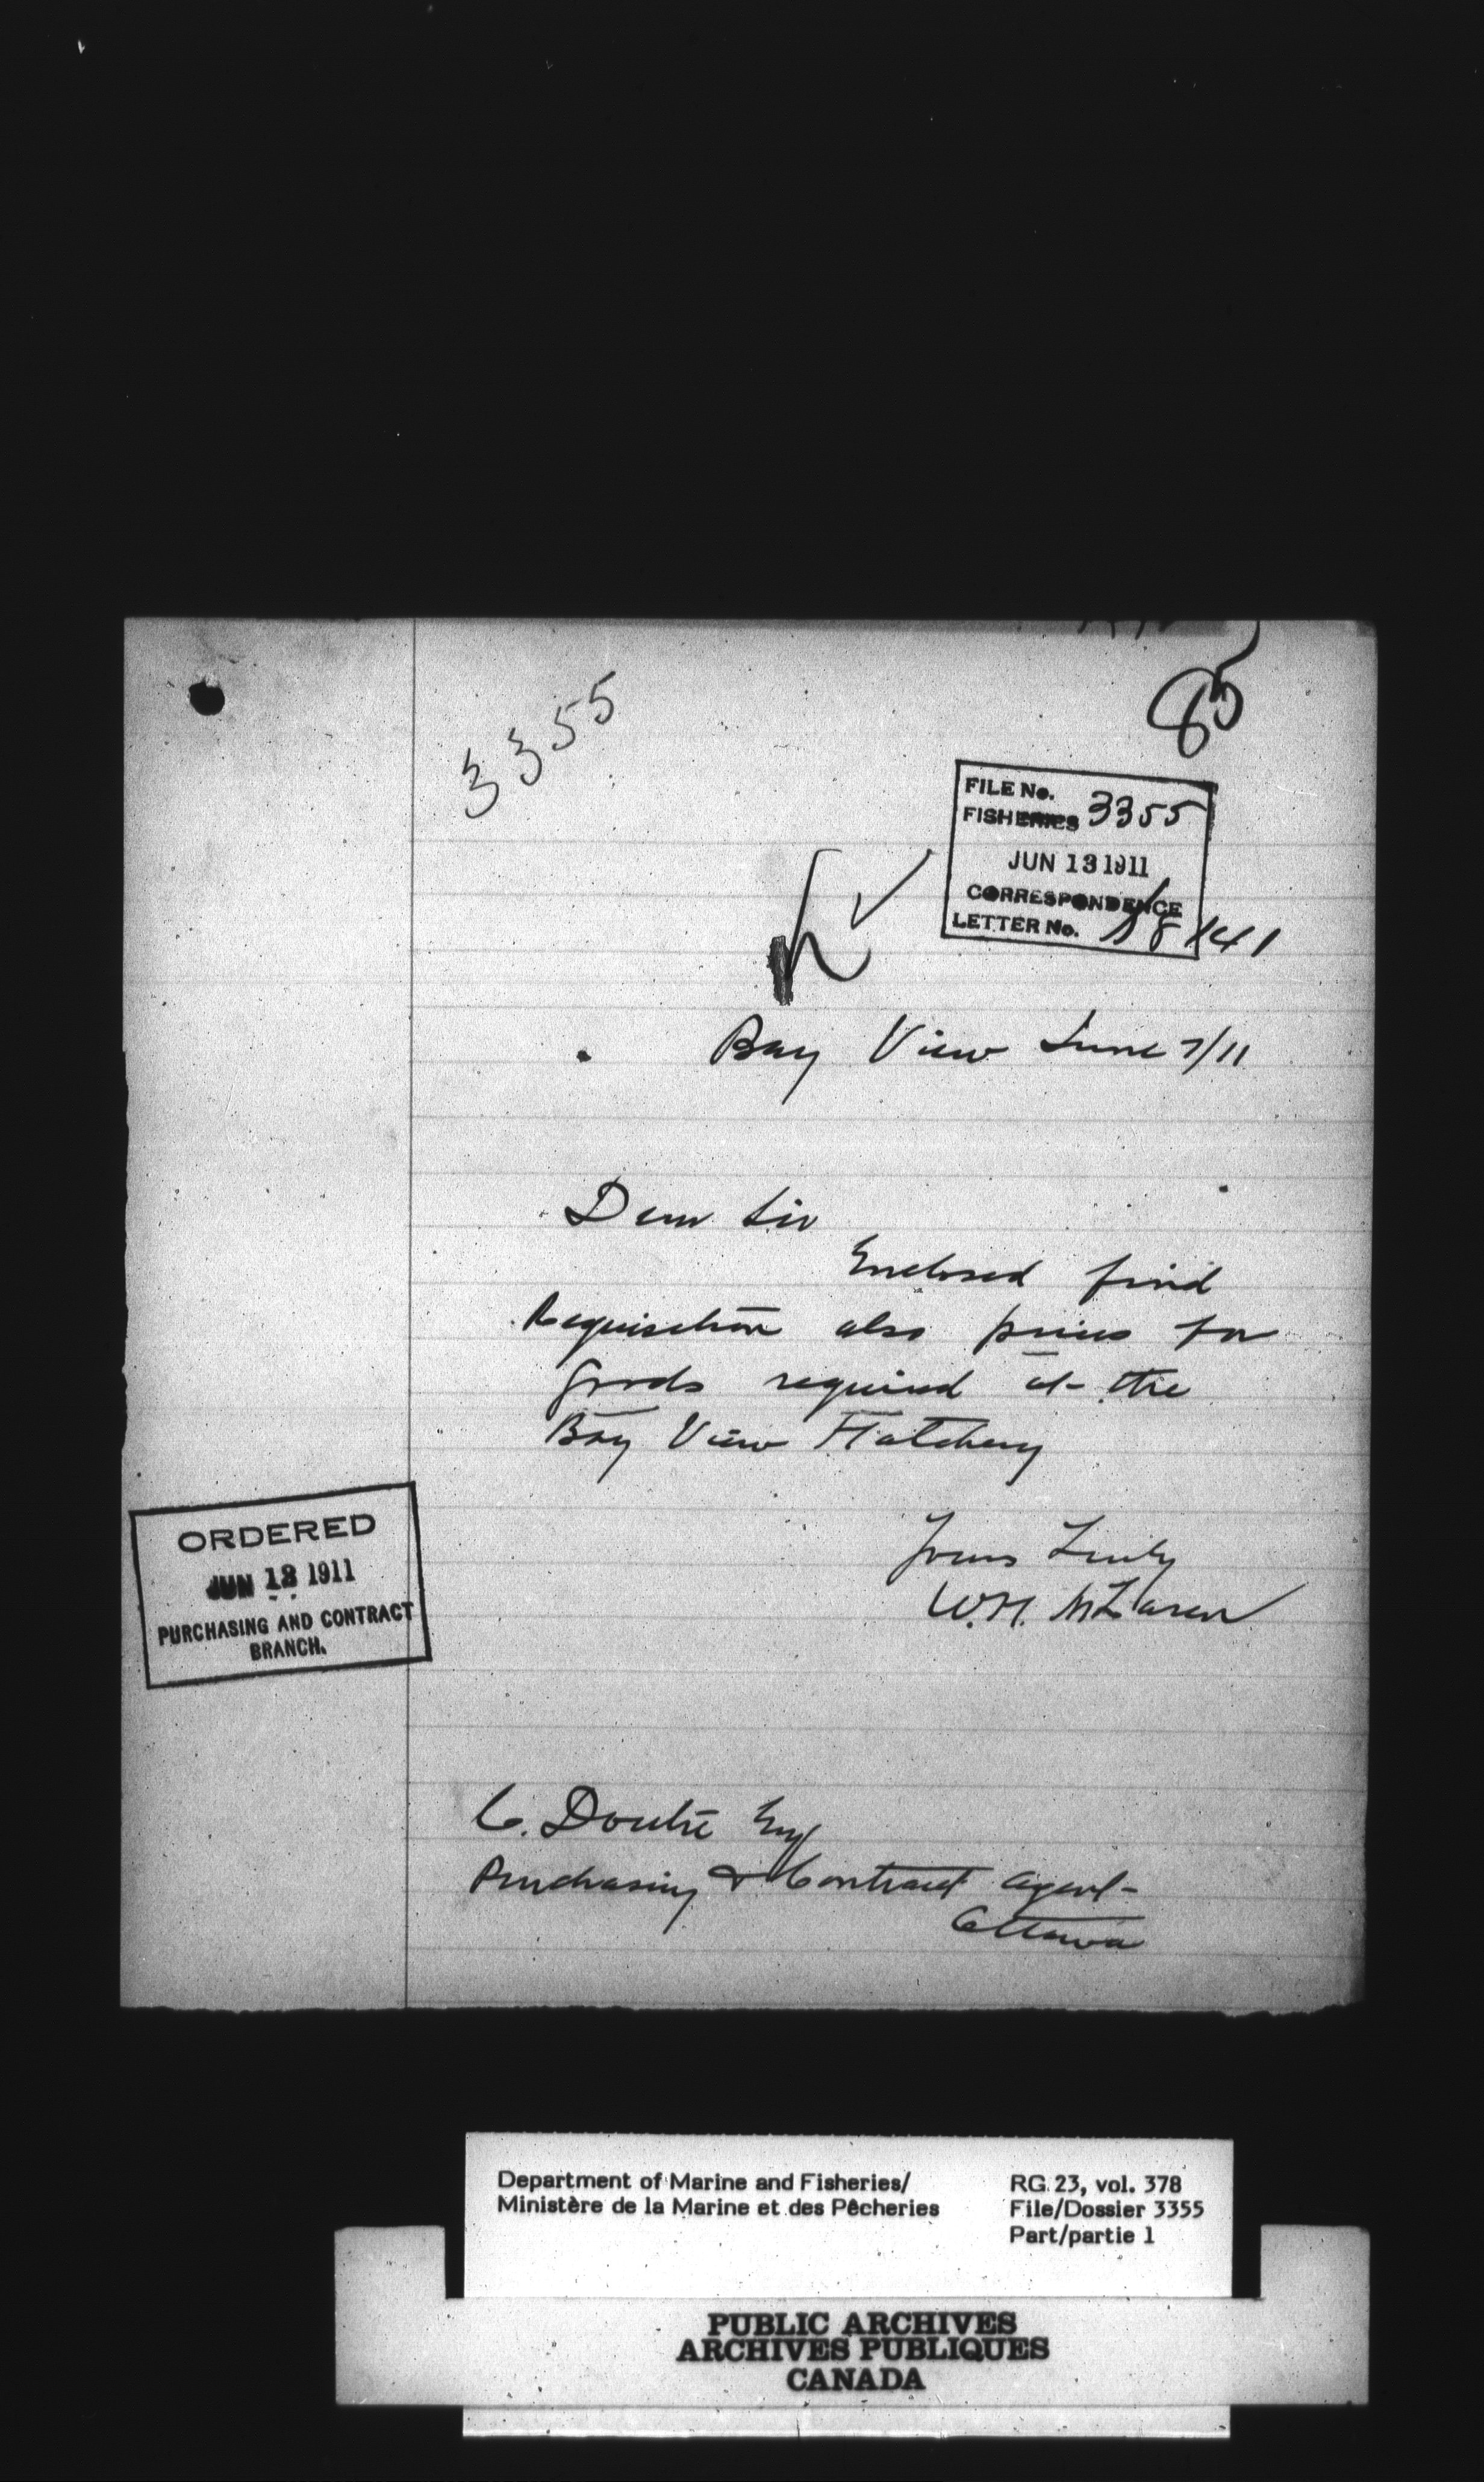 85
3355
FILE No.
FISHERIES 3355
JUN 13 1911
CORRESPONDENCE
LETTER No. 141
Bay View June 7/11
Dear Sir
Enclosed find
Requisition also prices for
Goods required at the
Bay View Hatchery
Yours Truly
W.H. McLaren
ORDERED
JUN 12 1911
PURCHASING AND CONTRACT
BRANCH.
C. Doutre Esq
Purchasing & Contract Agent
Ottawa
Department of Marine and Fisheries/
Ministère de la Marine et des Pêcheries
RG 23, vol. 378
File/Dossier 3355
Part/partie 1
PUBLIC ARCHIVES
ARCHIVES PUBLIQUES
CANADA